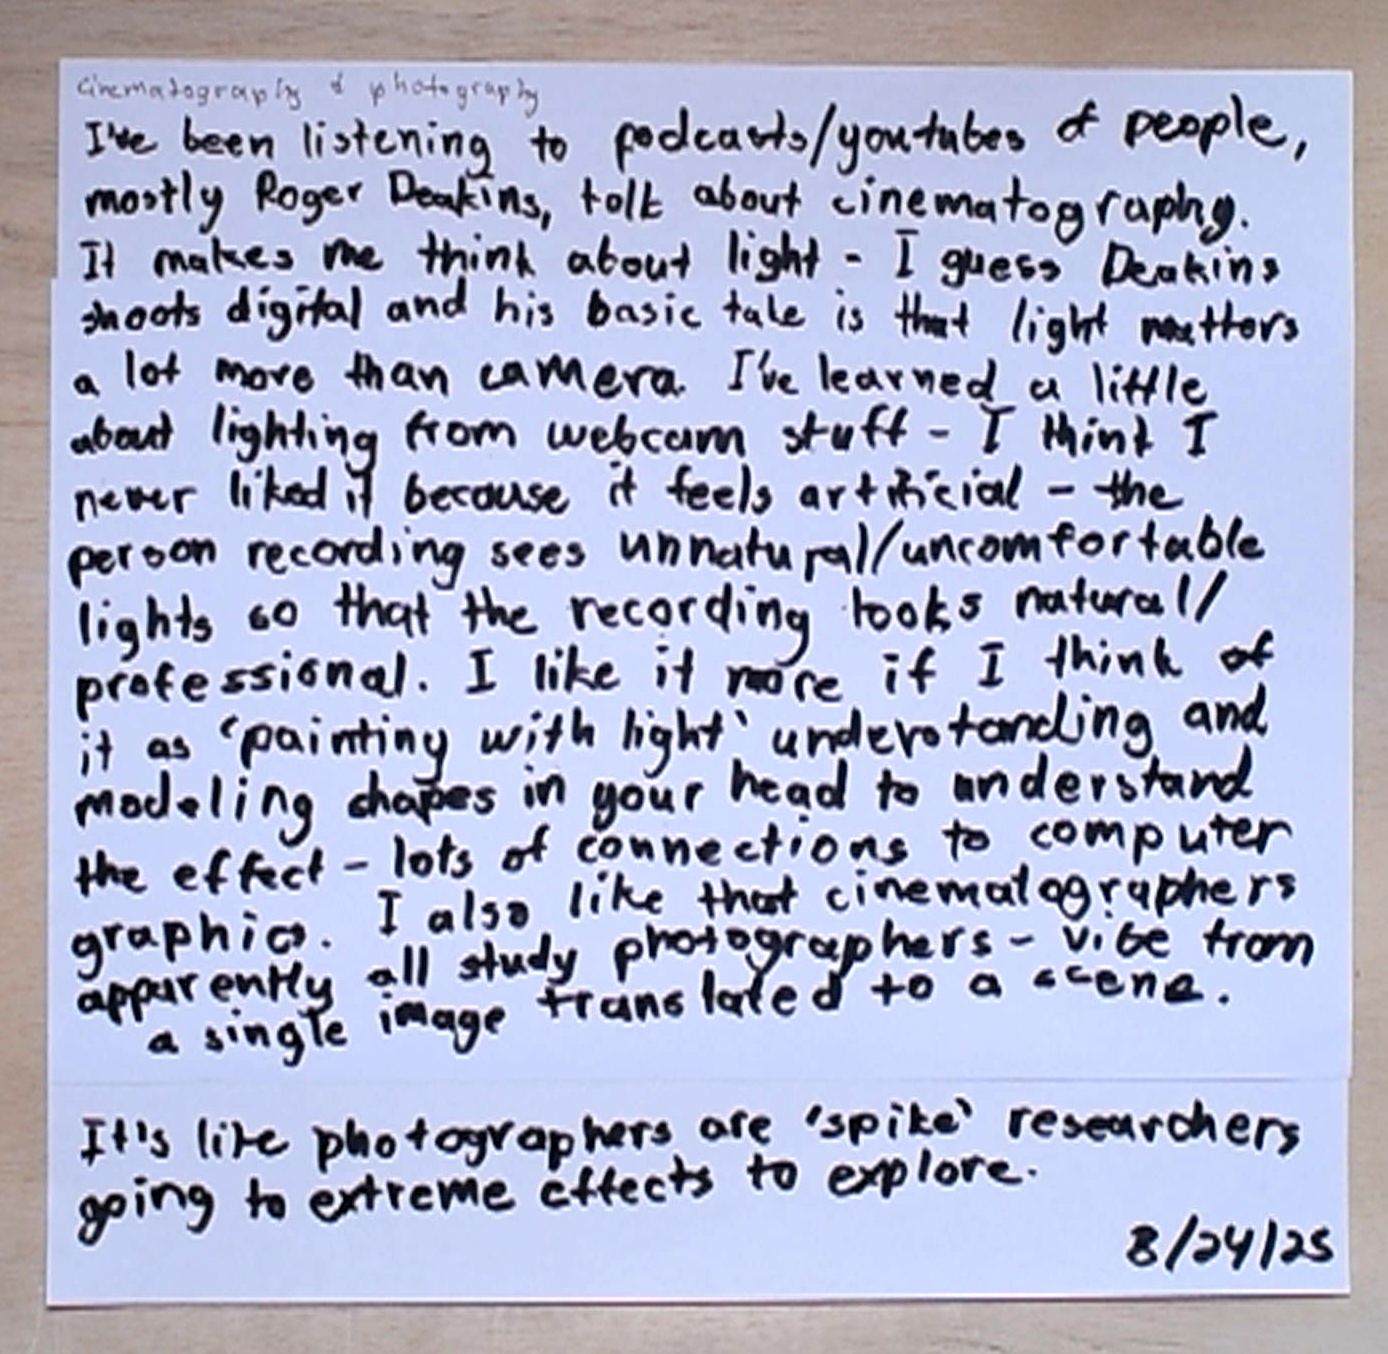 cinematography & photography
I've been listening to podcasts/youtubes of people,
mostly Roger Deakins, talk about cinematography.
It makes me think about light - I guess Deakins
shoots digital and his basic take is that light matters
a lot more than camera. I've learned a little
about lighting from webcam stuff - I think I
never liked it because it feels artificial - the
person recording sees unnatural/uncomfortable
lights so that the recording looks natural/
professional. I like it more if I think of
it as 'painting with light' understanding and
modeling shapes in your head to understand
the effect - lots of connections to computer
graphics. I also like that cinematographers
apparently all study photographers - vibe from
a single image translated to a scene.
It's like photographers are 'spike' researchers
going to extreme effects to explore.
8/24/25